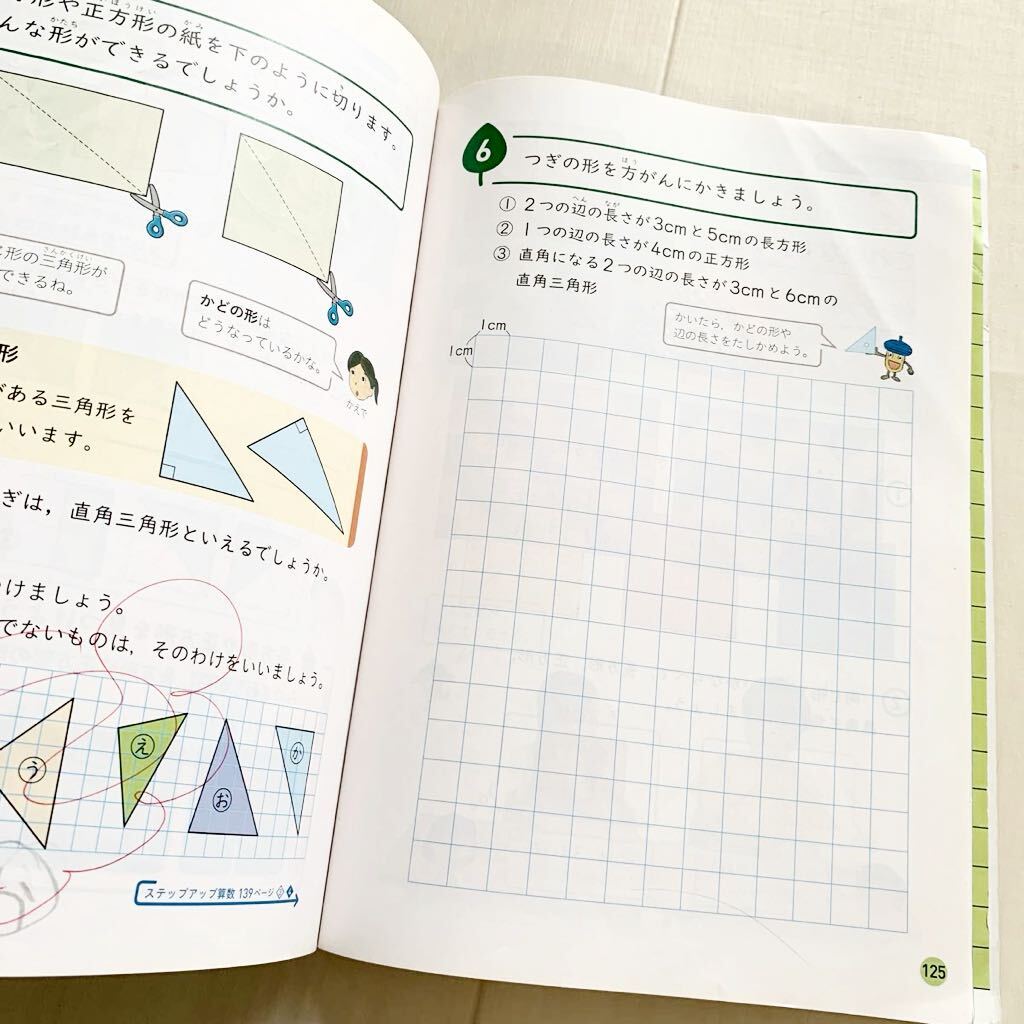 形や正方形の紙を下のように切ります。
んな形ができるでしょうか。
形の三角形が
できるね。
かどの形は
どうなっているかな。
かえで
形
がある三角形を
いいます。
ぎは，直角三角形といえるでしょうか。
けましょう。
でないものは，そのわけをいいましょう。
う
え
お
か
ステップアップ算数 139ページ
6
つぎの形を方がんにかきましょう。
① 2つの辺の長さが3cmと5cmの長方形
② 1つの辺の長さが4cmの正方形
③ 直角になる2つの辺の長さが3cmと6cmの
直角三角形
かいたら，かどの形や
辺の長さをたしかめよう。
1cm
1cm
125